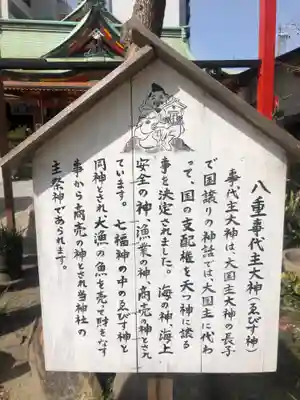 八重事代主大神(ゑびす神)
事代主大神は、大国主大神の長子
で国譲りの神話では、大国主に代わ
って、国の支配権を天つ神に譲る
事を決定されました。海の神、海上
安全の神、漁業の神、商売の神とされ
ています。　七福神の中のゑびす神と
同神とされ大漁の魚を売て財をなす
事から商売の神とされ当神社の
主祭神であられます。